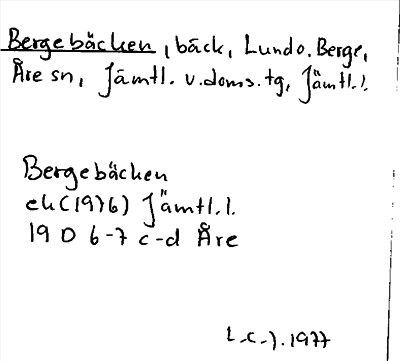 Bergebäcken, bäck, Lund o. Berge,
Åre sn, Jämtl. v. doms. tg, Jämtl. l.
Bergebäcken
ek (1976) Jämtl. l.
19 D 6-7 c-d Åre
L-C-J. 1977